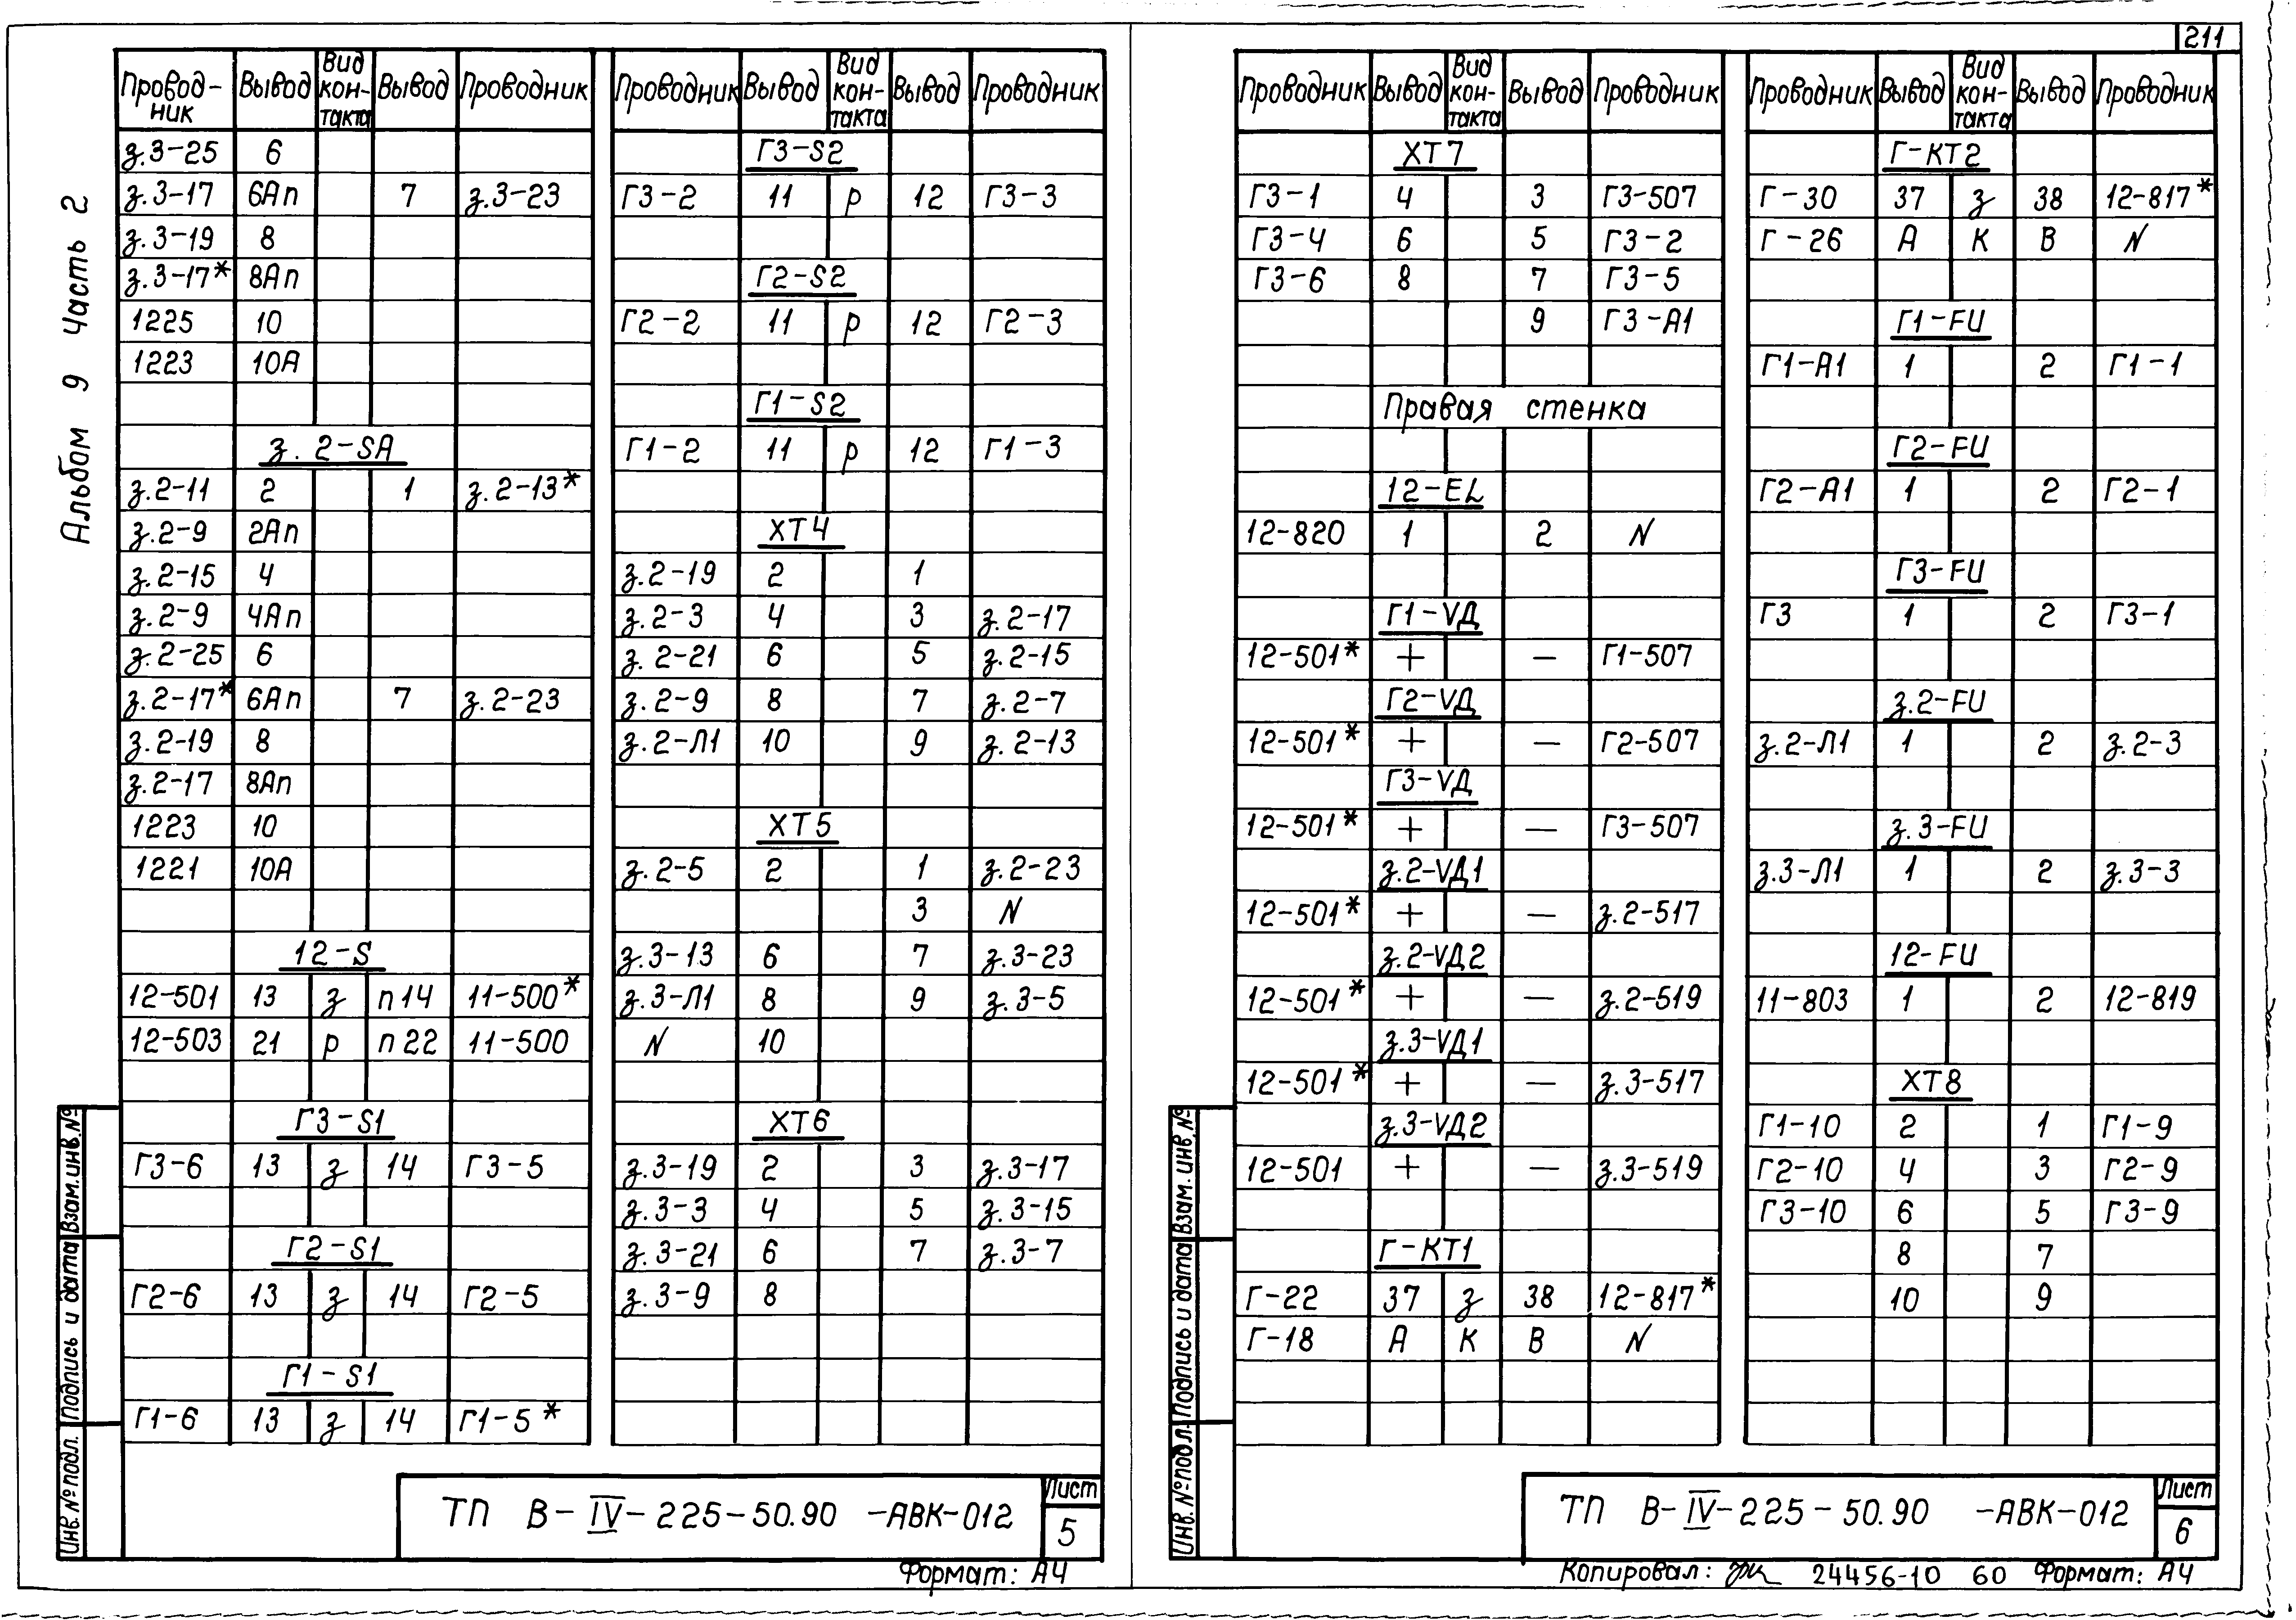 211
Альбом 9 Часть 2
Провод-ник Вывод Вид кон-такта Вывод Проводник
з.3-25 6
з.3-17 6Ап 7 з.3-23
з.3-19 8
з.3-17* 8Ап
1225 10
1223 10А
з.2-SA
з.2-11 2 1 з.2-13*
з.2-9 2Ап
з.2-15 4
з.2-9 4Ап
з.2-25 6
з.2-17* 6Ап 7 з.2-23
з.2-19 8
з.2-17 8Ап
1223 10
1221 10А
12-S
12-501 13 з п14 11-500*
12-503 21 р п22 11-500
Г3-S1
Г3-6 13 з 14 Г3-5
Г2-S1
Г2-6 13 з 14 Г2-5
Г1-S1
Г1-6 13 з 14 Г1-5*
Проводник Вывод Вид кон-такта Вывод Проводник
Г3-S2
Г3-2 11 р 12 Г3-3
Г2-S2
Г2-2 11 р 12 Г2-3
Г1-S2
Г1-2 11 р 12 Г1-3
ХТ4
з.2-19 2 1
з.2-3 4 3 з.2-17
з.2-21 6 5 з.2-15
з.2-9 8 7 з.2-7
з.2-Л1 10 9 з.2-13
ХТ5
з.2-5 2 1 з.2-23
3 N
з.3-13 6 7 з.3-23
з.3-Л1 8 9 з.3-5
N 10
ХТ6
з.3-19 2 3 з.3-17
з.3-3 4 5 з.3-15
з.3-21 6 7 з.3-7
з.3-9 8
Инв.№подл. Подпись и дата Взам.инв.№
ТП В-IV-225-50.90 -АВК-012
Лист
5
Формат: А4
Проводник Вывод Вид кон-такта Вывод Проводник
ХТ7
Г3-1 4 3 Г3-507
Г3-4 6 5 Г3-2
Г3-6 8 7 Г3-5
9 Г3-А1
Правая стенка
12-EL
12-820 1 2 N
Г1-VД
12-501* + — Г1-507
Г2-VД
12-501* + — Г2-507
Г3-VД
12-501* + — Г3-507
з.2-VД1
12-501* + — з.2-517
з.2-VД2
12-501* + — з.2-519
з.3-VД1
12-501* + — з.3-517
з.3-VД2
12-501 + — з.3-519
Г-КТ1
Г-22 37 з 38 12-817*
Г-18 А К В N
Проводник Вывод Вид кон-такта Вывод Проводник
Г-КТ2
Г-30 37 з 38 12-817*
Г-26 А К В N
Г1-FU
Г1-А1 1 2 Г1-1
Г2-FU
Г2-А1 1 2 Г2-1
Г3-FU
Г3 1 2 Г3-1
з.2-FU
з.2-Л1 1 2 з.2-3
з.3-FU
з.3-Л1 1 2 з.3-3
12-FU
11-803 1 2 12-819
ХТ8
Г1-10 2 1 Г1-9
Г2-10 4 3 Г2-9
Г3-10 6 5 Г3-9
8 7
10 9
Инв.№подл. Подпись и дата Взам.инв.№
ТП В-IV-225-50.90 -АВК-012
Лист
6
Копировал: 24456-10 60 Формат: А4